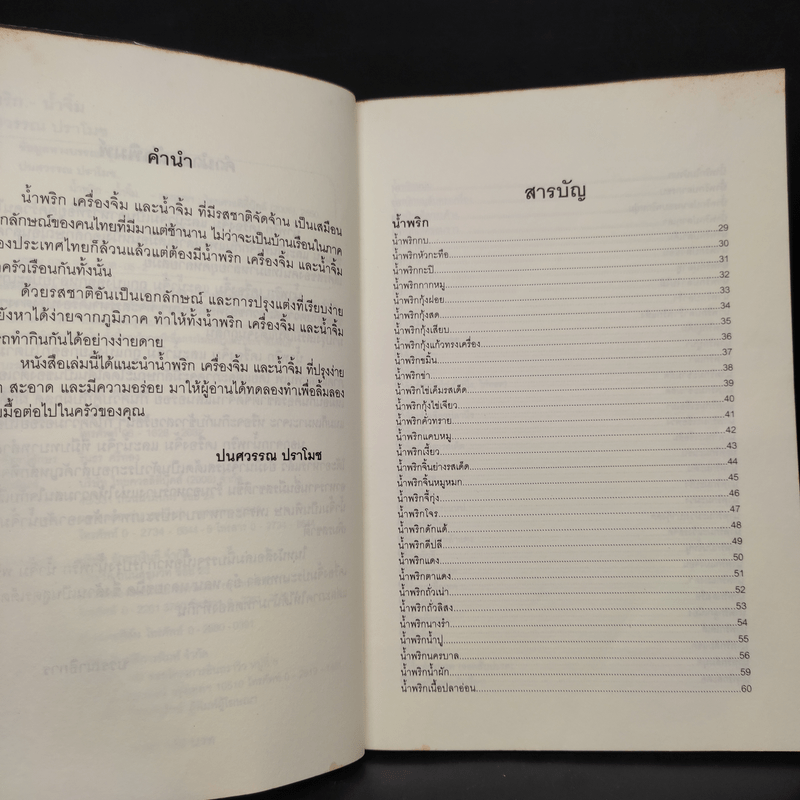 คำนำ
น้ำพริก เครื่องจิ้ม และน้ำจิ้ม ที่มีรสชาติจัดจ้าน เป็นเสมือน
อกลักษณ์ของคนไทยที่มีมาแต่ช้านาน ไม่ว่าจะเป็นบ้านเรือนในภาค
องประเทศไทยก็ล้วนแล้วแต่ต้องมีน้ำพริก เครื่องจิ้ม และน้ำจิ้ม
ครัวเรือนกันทั้งนั้น
ด้วยรสชาติอันเป็นเอกลักษณ์ และการปรุงแต่งที่เรียบง่าย
ยังหาได้ง่ายจากภูมิภาค ทำให้ทั้งน้ำพริก เครื่องจิ้ม และน้ำจิ้ม
รถทำกินกันได้อย่างง่ายดาย
หนังสือเล่มนี้ได้แนะนำน้ำพริก เครื่องจิ้ม และน้ำจิ้ม ที่ปรุงง่าย
สะอาด และมีความอร่อย มาให้ผู้อ่านได้ทดลองทำเพื่อลิ้มลอง
มื้อต่อไปในครัวของคุณ
ปนศวรรณ ปราโมช
สารบัญ
น้ำพริก
น้ำพริกกบ 29
น้ำพริกหัวกะทือ 30
น้ำพริกกะปิ 31
น้ำพริกกากหมู 32
น้ำพริกกุ้งฝอย 33
น้ำพริกกุ้งสด 34
น้ำพริกกุ้งเสียบ 35
น้ำพริกกุ้งแก้วทรงเครื่อง 36
น้ำพริกขมิ้น 37
น้ำพริกข่า 38
น้ำพริกไข่เค็มรสเด็ด 39
น้ำพริกกุ้งไข่เจียว 40
น้ำพริกคั่วทราย 41
น้ำพริกแคบหมู 42
น้ำพริกเงี้ยว 43
น้ำพริกจิ้นย่างรสเด็ด 44
น้ำพริกจิ้นหมูหมก 45
น้ำพริกจี้กุ้ง 46
น้ำพริกโจร 47
น้ำพริกดักแด้ 48
น้ำพริกดีปลี 49
น้ำพริกแดง 50
น้ำพริกตาแดง 51
น้ำพริกถั่วเน่า 52
น้ำพริกถั่วลิสง 53
น้ำพริกนางรำ 54
น้ำพริกน้ำปู 55
น้ำพริกนครบาล 56
น้ำพริกน้ำผัก 59
น้ำพริกเนื้อปลาอ่อน 60